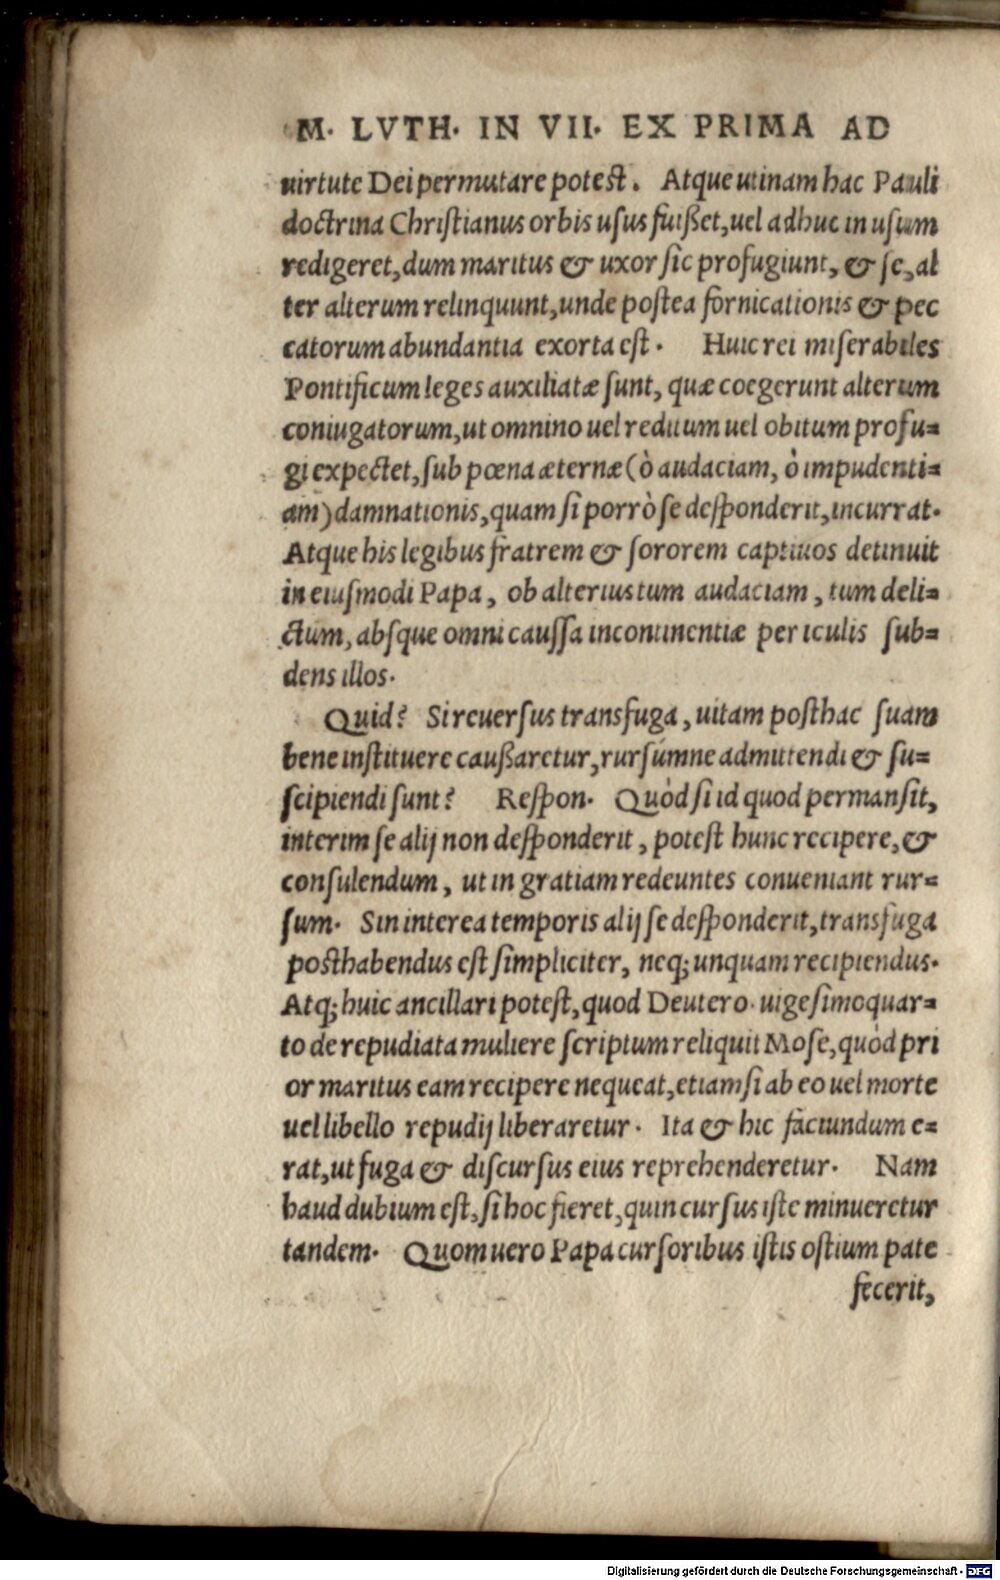 M. LVTH. IN VII. EX PRIMA AD
uirtute Dei permutare potest. Atque utinam hac Pauli
doctrina Christianus orbis usus fuißet, uel adhuc in usum
redigeret, dum maritus & uxor sic profugiunt, & se, al
ter alterum relinquunt, unde postea fornicationis & pec
catorum abundantia exorta est. Huic rei miserabiles
Pontificum leges auxiliatæ sunt, quæ coegerunt alterum
coniugatorum, ut omnino uel reditum uel obitum profu=
gi expectet, sub pœna æternæ (ò audaciam, ò impudenti=
am) damnationis, quam si porrò se desponderit, incurrat.
Atque his legibus fratrem & sororem captiuos detinuit
in eiusmodi Papa, ob alterius tum audaciam, tum deli=
ctum, absque omni caussa incontinentiæ periculis sub=
dens illos.
Quid? Si reuersus transfuga, uitam posthac suam
bene instituere caußaretur, rursúmne admittendi & su=
scipiendi sunt? Respon. Quòd si id quod permansit,
interim se alij non desponderit, potest hunc recipere, &
consulendum, ut in gratiam redeuntes conueniant rur=
sum. Sin interea temporis alij se desponderit, transfuga
posthabendus est simpliciter, neq; unquam recipiendus.
Atq; huic ancillari potest, quod Deutero. uigesimoquar=
to de repudiata muliere scriptum reliquit Mose, quòd pri
or maritus eam recipere nequeat, etiam si ab eo uel morte
uel libello repudij liberaretur. Ita & hic faciundum e=
rat, ut fuga & discursus eius reprehenderetur. Nam
haud dubium est, si hoc fieret, quin cursus iste minueretur
tandem. Quom uero Papa cursoribus istis ostium pate
fecerit,
Digitalisierung gefördert durch die Deutsche Forschungsgemeinschaft - DFG